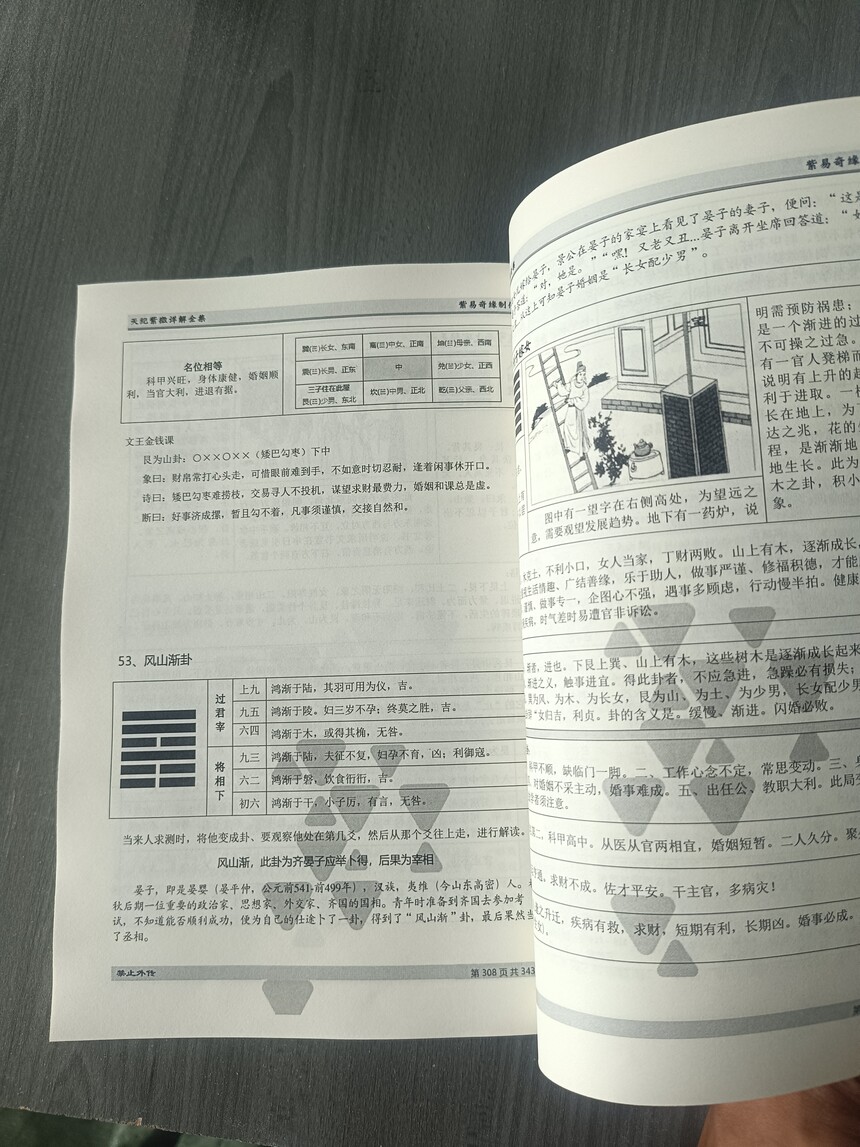 天纪紫微详解全集
紫易奇缘制
名位相等
科甲兴旺，身体康健，婚姻顺
利，当官大利，进退有据。
巽(☴)长女、东南 離(☲)中女、正南 坤(☷)母亲、西南
震(☳)长男、正东 中 兑(☱)少女、正西
三子住在此屋
艮(☶)少男、东北 坎(☵)中男、正北 乾(☰)父亲、西北
文王金钱课
艮为山卦：〇××〇××（矮巴勾枣）下中
象曰：财帛常打心头走，可惜眼前难到手，不如意时切忍耐，逢着闲事休开口。
诗曰：矮巴勾枣难捞枝，交易寻人不投机，谋望求财最费力，婚姻和课总是虚。
断曰：好事济成摞，暂且勾不着，凡事须谨慎，交接自然和。
53、风山渐卦
过君宰
上九 鸿渐于陆，其羽可用为仪，吉。
九五 鸿渐于陵。妇三岁不孕；终莫之胜，吉。
六四 鸿渐于木，或得其桷，无咎。
将相下
九三 鸿渐于陆，夫征不复，妇孕不育，凶；利御寇。
六二 鸿渐于磐，饮食衎衎，吉。
初六 鸿渐于干，小子厉，有言，无咎。
当来人求测时，将他变成卦、要观察他处在第几爻，然后从那个爻往上走，进行解读。
风山渐，此卦为齐晏子应举卜得，后果为宰相
晏子，即是晏婴（晏平仲，公元前541-前499年），汉族，夷维（今山东高密）人。
秋后期一位重要的政治家、思想家、外交家、齐国的国相。青年时准备到齐国去参加考
试，不知道能否顺利成功，便为自己的仕途卜了一卦，得到了“风山渐”卦，最后果然当
了丞相。
禁止外传
第 308 页 共 343
紫易奇缘
嫁给晏子，景公在晏子的家宴上看见了晏子的妻子，便问：“这是
答道：“对，她是。”“嘿！又老又丑...晏子离开坐席回答道：“
从这上可知晏子婚姻是“长女配少男”。
望
图中有一望字在右侧高处，为望远之
意，需要观望发展趋势。地下有一药炉，说
明需预防祸患；
是一个渐进的过
不可操之过急。
有一官人凳梯而
说明有上升的趋
利于进取。一
长在地上，为
达之兆，花的
程，是渐渐地
地生长。此为
木之卦，积小
象。
木克土，不利小口，女人当家，丁财两败。山上有木，逐渐成长，
生活情趣、广结善缘，乐于助人，做事严谨、修福积德，才能
做事专一，企图心不强，遇事多顾虑，行动慢半拍。健康
时气差时易遭官非诉讼。
渐者，进也。下艮上巽、山上有木，这些树木是逐渐成长起来
渐进之义，触事进宜。得此卦者，不应急进，急躁必有损失；
巽为风、为木、为长女，艮为山、为土、为少男，长女配少男
“女归吉，利贞。卦的含义是。缓慢、渐进。闪婚必败。
科甲不顺，缺临门一脚。二、工作心念不定，常思变动。三、
对婚姻不采主动，婚事难成。五、出任公、教职大利。此局
学者须注意。
二，科甲高中。从医从官两相宜，婚姻短暂。二人久分。聚
亨通，求财不成。佐才平安。干主官，多病灾！
逢之升迁，疾病有救，求财，短期有利，长期凶。婚事必成。